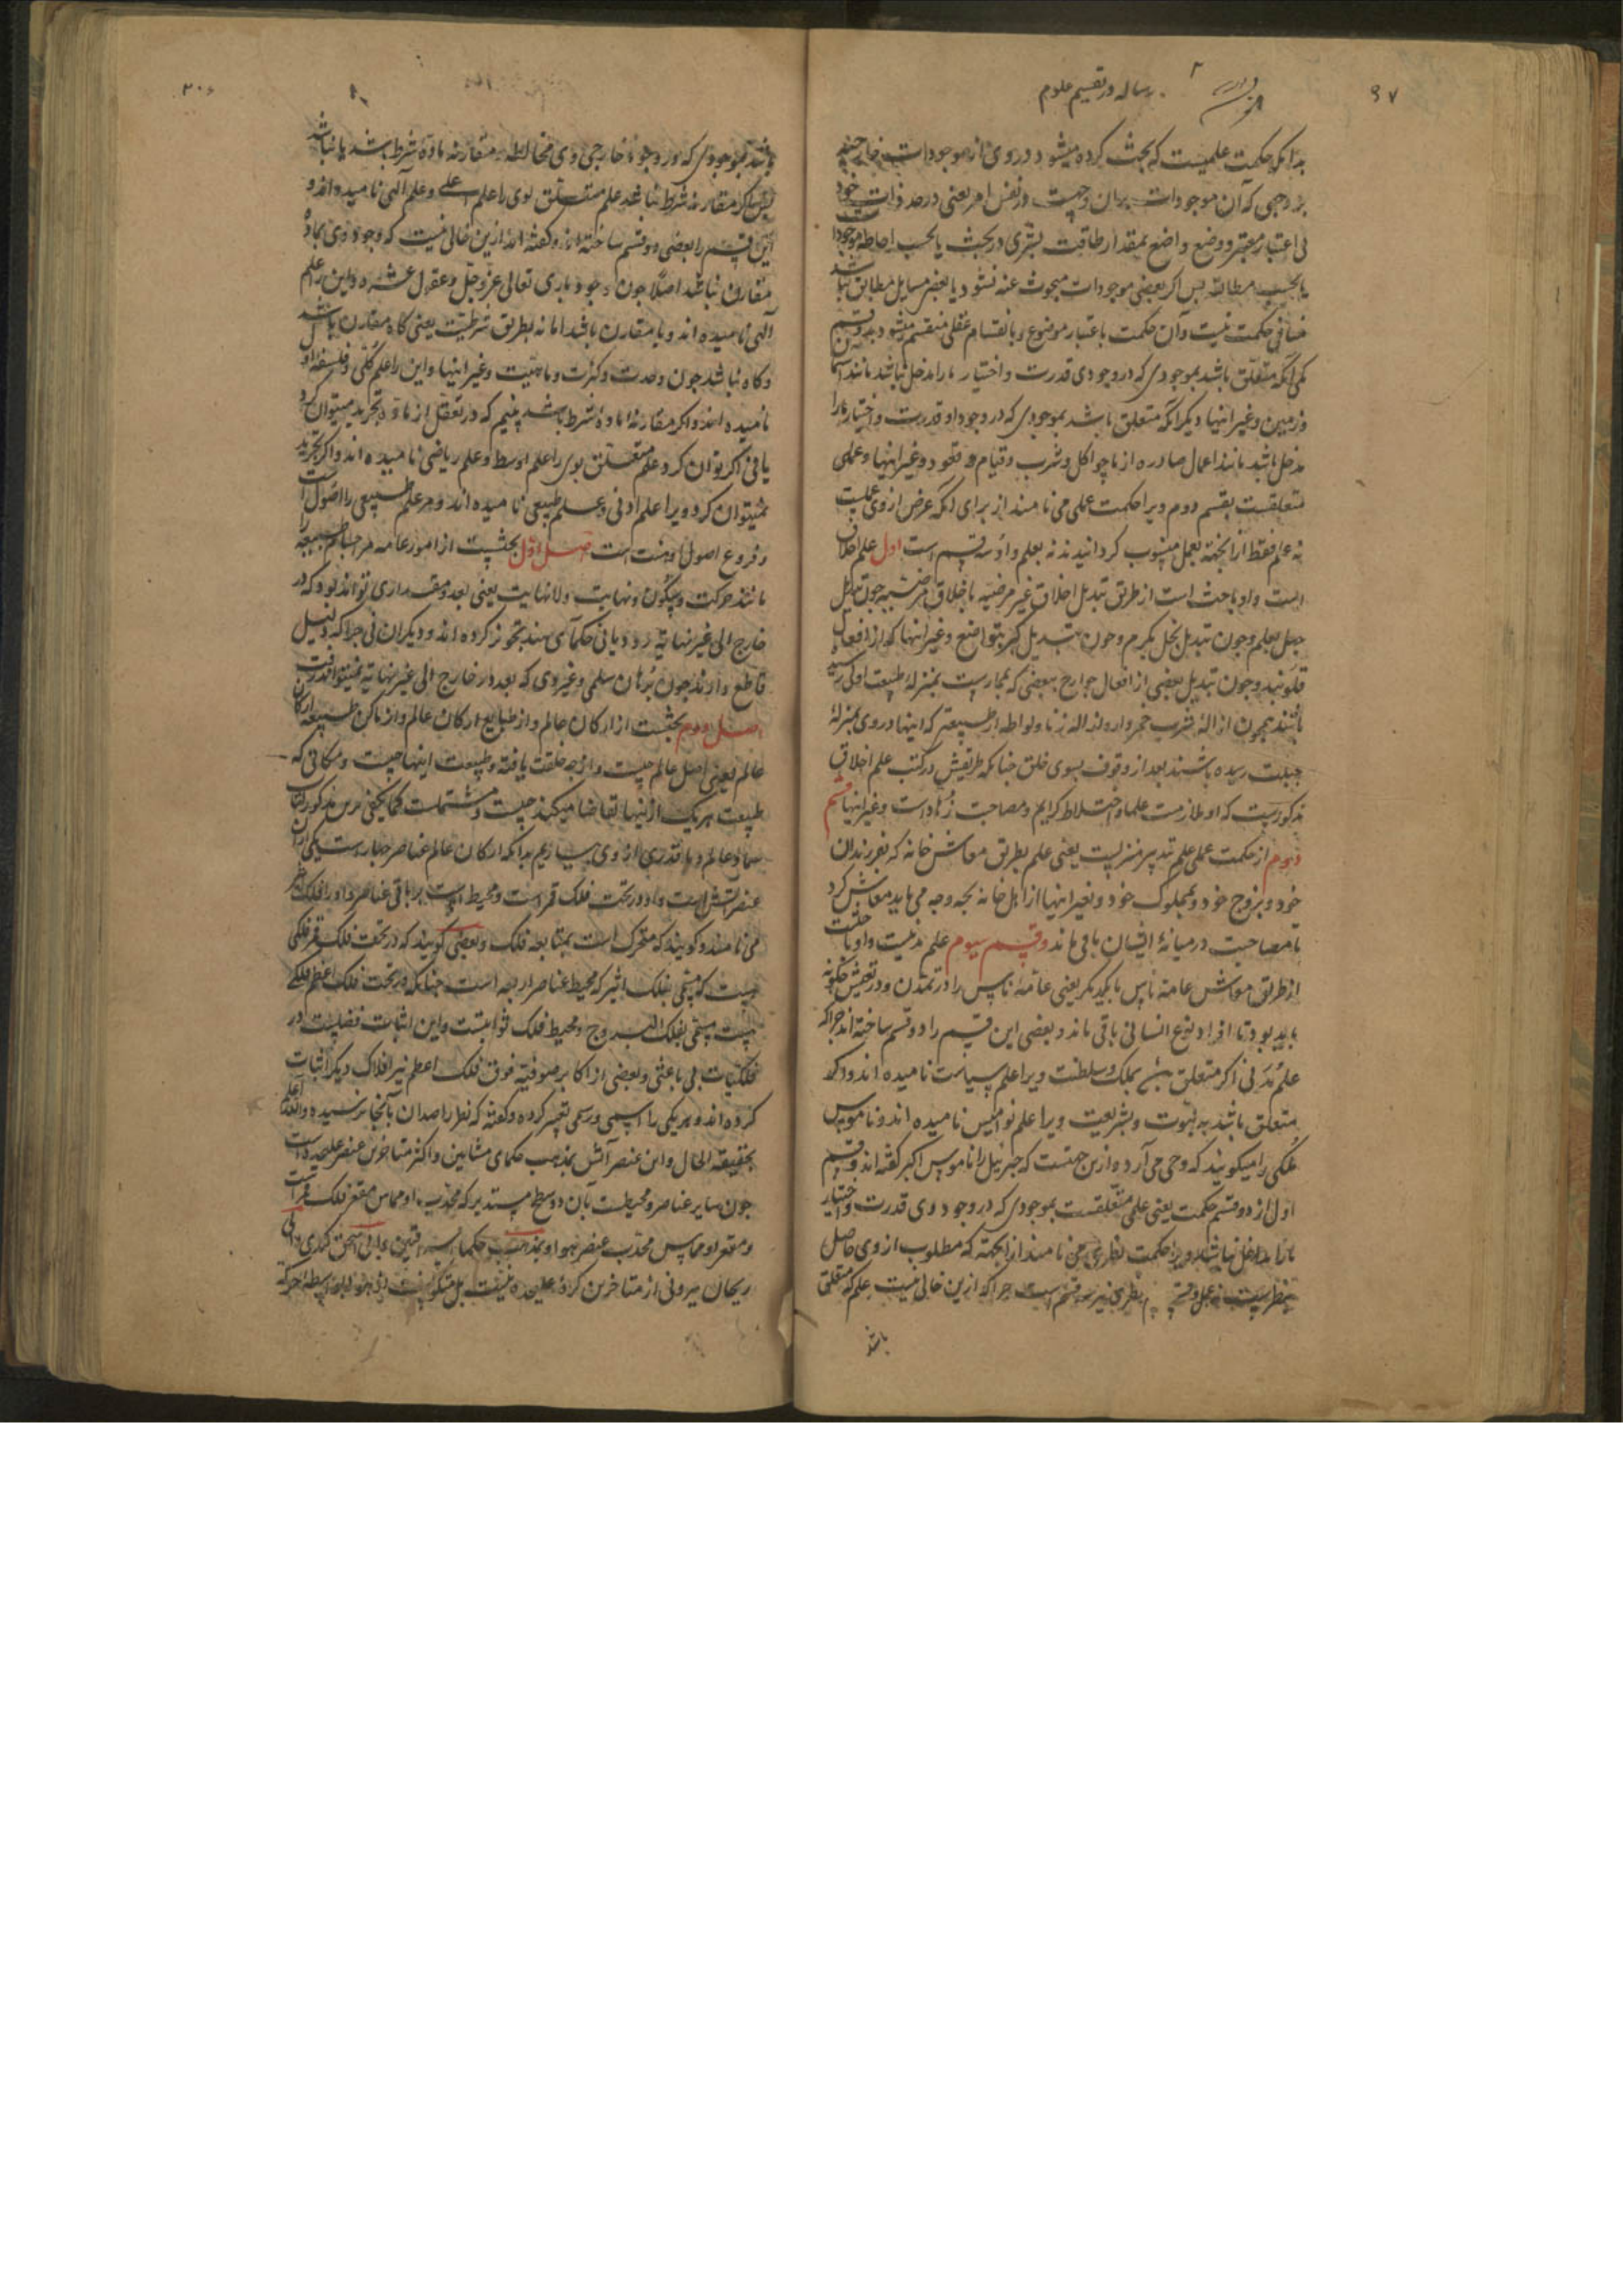 ۹۷
رساله در تقسیم علوم
بدانکه حکمت علمیست که بحث کرده میشود در وی از موجودات خارجیه
بر وجهی که آن موجودات بران وجهست در نفس امر یعنی در حد ذات خود
بی اعتبار معتبر و وضع واضع بمقدار طاقت بشری در بحث یا بحسب احاطه موجودات
یا بحسب مطابقه بس اکر بعضی موجودات مبحوث عنه نشود یا بعضی مسایل مطابق نباشد
منافی حکمت نیست وآن حکمت باعتبار موضوع و بانقسام عقلی منقسم میشود بدو قسم
یکی آنکه متعلق باشد بموجودی که در وجود وی قدرت و اختیار ما را مدخل نباشد مانند آسمان
وزمین وغیر اینها دیکر آنکه متعلق باشد بموجودی که در وجود او قدرت و اختیار ما را
مدخل باشد مانند اعمال صادره از ما چو اکل و شرب و قیام و قعود وغیر اینها وعلمی
متعلقست بقسم دوم ویرا حکمت عملی می نامند از برای آنکه غرض از وی عملست
نه علم فقط از انجهة بعمل منسوب کردانیدند نه بعلم واو سه قسم است اول علم اخلاق
است واو باحث است از طریق تبدیل اخلاق غیر مرضیه باخلاق مرضیه چون تبدیل
جهل بعلم وچون تبدیل بخل بکرم وچون تبدیل کبر بتواضع وغیر اینها که از افعال
قلوبند وچون تبدیل بعضی از افعال جوارح ببعضی که بممارست بمنزلۀ طبیعت اولی رسیده
باشند همچون ازالۀ شرب خمر وازالۀ زنا ولواطه از طبیعتی که اینها در وی بمنزلۀ
جبلت رسیده باشند بعد از وقوف بسوی خلق چنانکه طریقش در کتب علم اخلاق
مذکورست که او ملازمت علما واختلاط کرایم ومصاحبت زهادست وغیر اینها قسم
دوم از حکمت عملی علم تدبیر منزلیست یعنی علم بطریق معاش خانه که بفرزندان
خود وبزوج خود وبمملوک خود وبغیر اینها از اهل خانه بچه وجه می باید معاش کرد
تا مصاحبت درمیانۀ ایشان باقی ماند وقسم سیوم علم مدنیست واو باحثست
از طریق معاش عامه ناس با یکدیکر یعنی عامۀ ناس را در تمدن ودر تعیش چکونه
باید بود تا افراد نوع انسانی باقی ماند وبعضی این قسم را دو قسم ساخته اند چراکه
علم مدنی اکر متعلق بملک وسلطنت ویرا علم سیاست نامیده اند واکر
متعلق باشد به نبوت وبشریعت ویرا علم نوامیس نامیده اند وناموس
ملکی را میکویند که وحی می آرد وازین جهتست که جبرئیل را ناموس اکبر کفته اند وقسم
اول از دو قسم حکمت یعنی علمی متعلقست بموجودی که در وجود وی قدرت واختیار
ما را مدخل نباشد ویرا حکمت نظری می نامند از انجهة که مطلوب از وی حاصل
نظریست نه عمل وقسم نظری نیز سه قسم است چراکه ازین خالی نیست علم که متعلق
باشد
۲۰۶
باشد بموجودی که در وجود خارجی وی مخالطه ومقارنه مادة شرط باشد یا نباشد
پس اکر مقارنه شرط نباشد علم متعلق بوی را علم اعلی وعلم آلهی نامیده اند و
این قسم را بعضی دو قسم ساخته اند وکفته اند ازین خالی نیست که وجود وی بماده
مقارن نباشد اصلا چون وجود باری تعالی عز وجل وعقول عشره واین را علم
آلهی نامیده اند ویا مقارن باشد اما نه بطریق شرطیت یعنی کاه مقارن باشد
وکاه نباشد چون وحدت وکثرت وماهیت وغیر اینها واین را علم کلی وفلسفه اولی
نامیده اند واکر مقارنه ماده شرط باشد بینیم که در تعقل از ماده تجرید میتوان کرد
یا نی اکر توان کرد علم متعلق بوی را علم اوسط وعلم ریاضی نامیده اند واکر تجرید
نمیتوان کرد ویرا علم ادنی وعلم طبیعی نامیده اند ومر علم طبیعی را اصول است
وفروع اصول او هشت است اصل اول بحثیست از امور عامه مر اجسام طبیعیه را
مانند حرکت وسکون ونهایت ولانهایت یعنی بعد ومقداری تواند بود که در
خارج الی غیر نهایة رود یا نی حکمای هند تجویز کرده اند ودیکران نی چراکه دلیل
قاطع دارند چون برهان سلمی وغیر وی که بعد در خارج الی غیر نهایة نمیتواند رفت
اصل دوم بحثست از ارکان عالم واز طبایع ارکان عالم واز اماکن طبیعیه ارکان
عالم یعنی اصل عالم چیست واز چه خلقت یافته وطبیعت اینها چیست ومکانی که
طبیعت هر یک از اینها تقاضا میکند چیست ومشتملات کماینبغی برین مذکور کتاب
سماء وعالم وما قدری از وی بیاریم بدانکه ارکان عالم عناصر چهارست یکی ازان
عنصر آتش است واو در تحت فلک قمر است ومحیط است بر باقی عناصر واو را فلک اثیر
می نامند وکویند که متحرک است بمتابعه فلک وبعضی کویند که در تحت فلک قمر فلکی
هست که مسمی بفلک اثیر که محیط عناصر اربعه است چنانکه در تحت فلک اعظم فلکی
هست مسمی بفلک البروج ومحیط فلک ثوابتست واین اثبات فضلیست در
فلکیات بی باعثی وبعضی از اکابر صوفیه فوق فلک اعظم نیز افلاک دیکر اثبات
کرده اند وهر یکی را اسمی ورسمی تعیین کرده وکفته که نظر راصدان بآنجا نرسیده والله اعلم
بحقیقة الحال واین عنصر آتش بمذهب حکمای مشایین واکثر متاخرین عنصر علیحده است
چون سایر عناصر ومحیطست بآن دو سطح مستدیر که محدب او مماس مقعر فلک قمر است
ومقعر او مماس محدب عنصر هوا وبمذهب حکما اسحق کندی وابی
ریحان بیرونی از متاخرین کرۀ علیحده نیست بل بواسطه حرکة